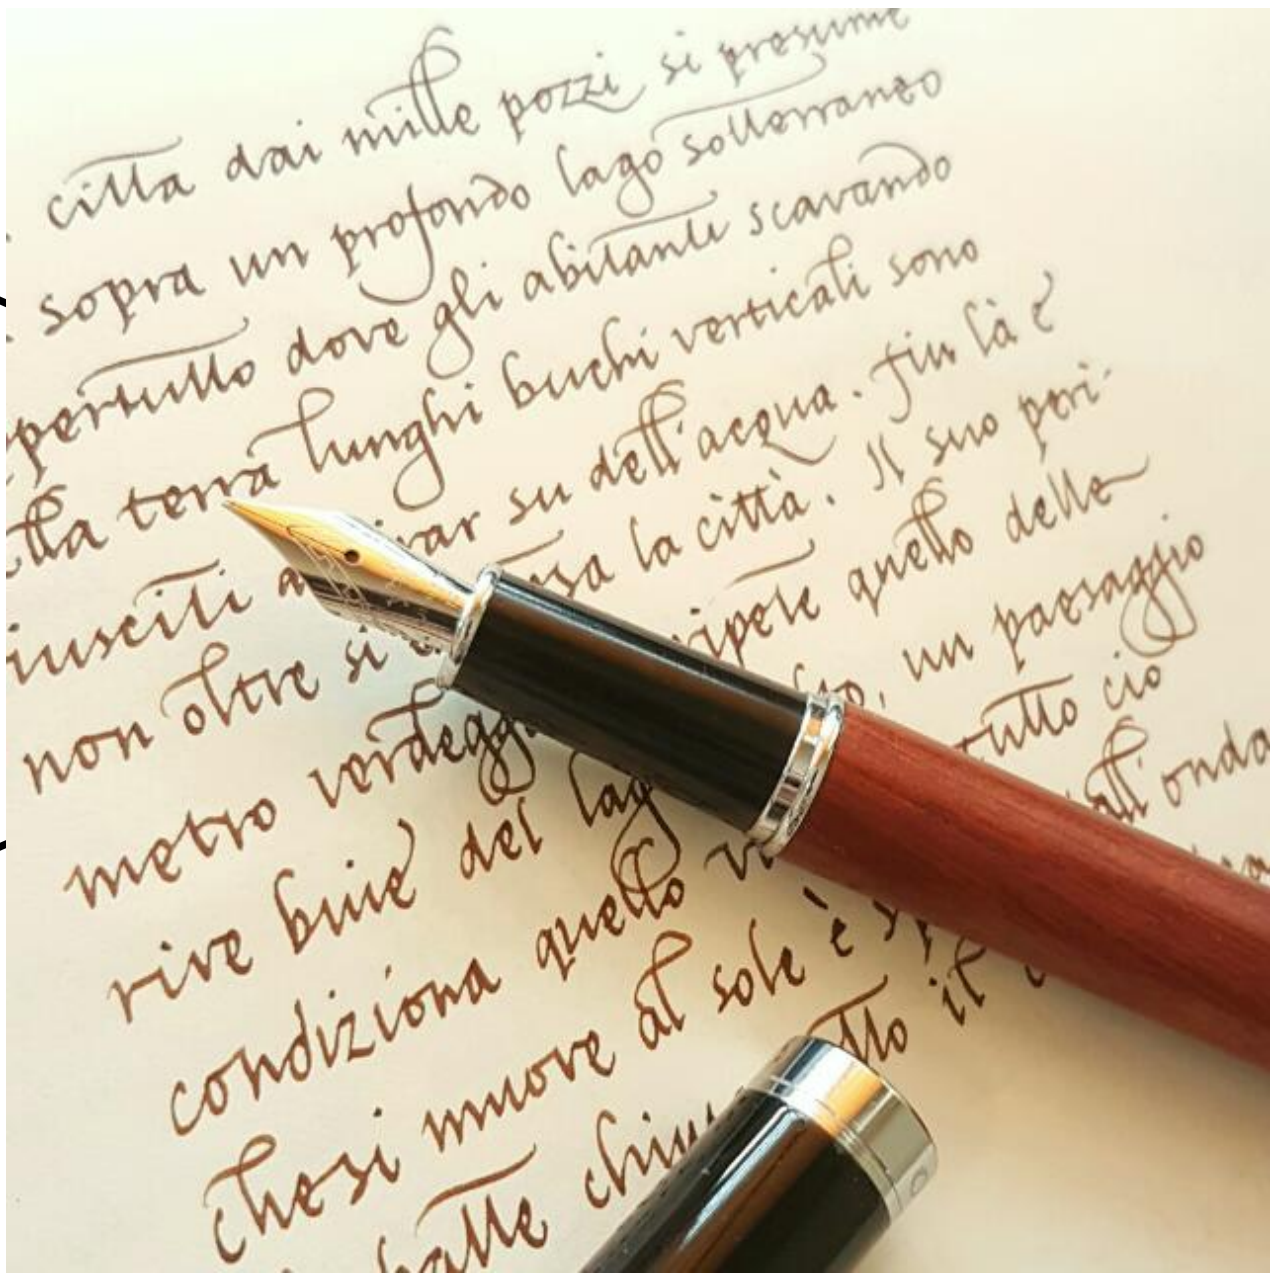 città dai mille pozzi si presume
sopra un profondo lago sotterraneo
pertutto dove gli abitanti scavando
lla terra lunghi buchi verticali sono
iusciti a irar su dell'acqua. fin là e
non oltre si la città. Il suo peri-
metro verdegg ripete quello delle
rive buie del lag o, un paesaggio
condiziona quello tutto ciò
che si muove al sole è all'onda
batte chiu tto il